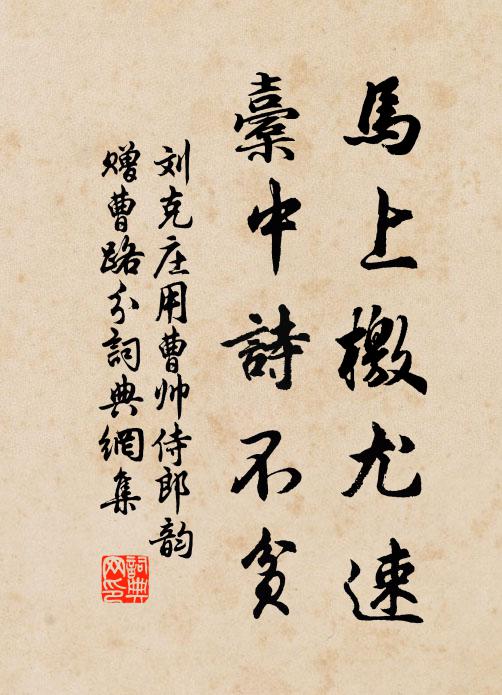 馬上檄尤速
橐中詩不貧
刘克庄用曹帅侍郎韵
赠曹路分詞典網集
詞典网印